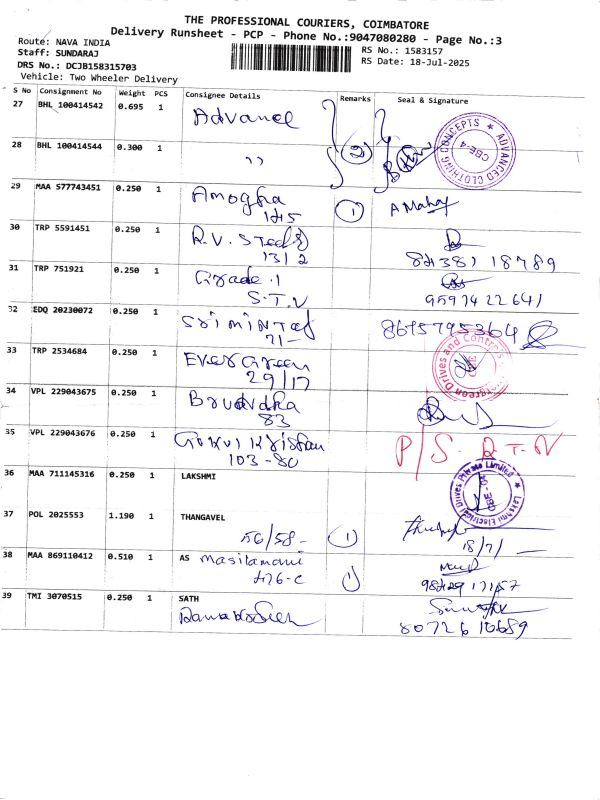 THE PROFESSIONAL COURIERS, COIMBATORE
Delivery Runsheet - PCP - Phone No.:9047080280 - Page No.:3
Route: NAVA INDIA
Staff: SUNDARAJ
DRS No.: DCJB158315703
Vehicle: Two Wheeler Delivery
RS No.: 1583157
RS Date: 18-Jul-2025
S No Consignment No Weight PCS Consignee Details Remarks Seal & Signature
27 BHL 100414542 0.695 1 Advance
28 BHL 100414544 0.300 1 ,, 2
ADVANCED CLOTHING CONCEPTS ★ CBE-4
29 MAA 577743451 0.250 1 Amogha 1
30 TRP 5591451 0.250 1 R.V. Steels
1312
31 TRP 751921 0.250 1 Grade 1
S.T.V 9597422641
32 EDQ 20230072 0.250 1
71- 8695795364
33 TRP 2534684 0.250 1 Evergreen
29/17
Evergreen Drives and Controls
34 VPL 229043675 0.250 1
83
35 VPL 229043676 0.250 1 Gokul Krishan P/S. R.T.N
103-80
36 MAA 711145316 0.250 1 LAKSHMI
Lakshmi Electrical Drives Private Limited ★ CBE-05
37 POL 2025553 1.190 1 THANGAVEL
56/58- 1 18/7/
38 MAA 869110412 0.510 1 AS Masilamani
1
39 TMI 3070515 0.250 1 SATH
8072610689